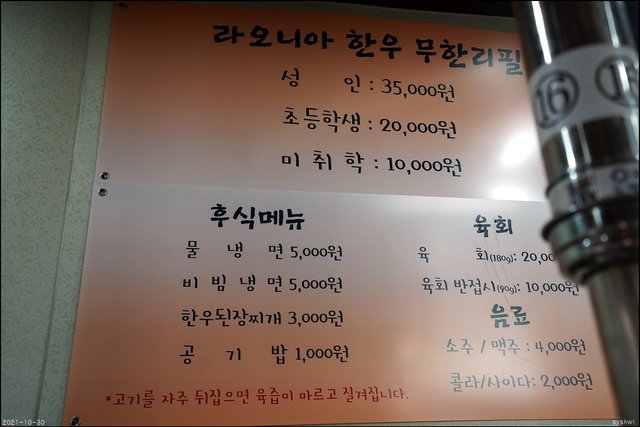 라오니아 한우 무한리필
성 인 : 35,000원
초등학생 : 20,000원
미 취 학 : 10,000원
후식메뉴
물 냉 면 5,000원
비 빔 냉 면 5,000원
한우된장찌개 3,000원
공 기 밥 1,000원
육회
육 회(180g): 20,00
육회 반접시(90g): 10,000원
음료
소주 / 맥주 : 4,000원
콜라/사이다: 2,000원
*고기를 자주 뒤집으면 육즙이 마르고 질겨집니다.
16
2021-10-30
syskwl